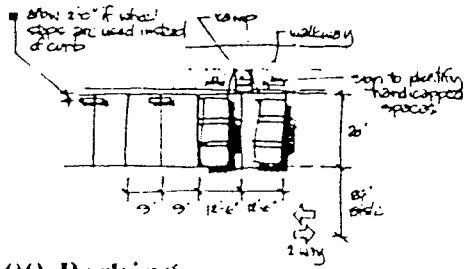 ■ allow 2'0" if wheel
stops are used instead
of curb
ramp
walkway
sign to identify
handicapped
spaces
20'
9' 9' 12'-6" 12'-6"
2 way
90° Parking